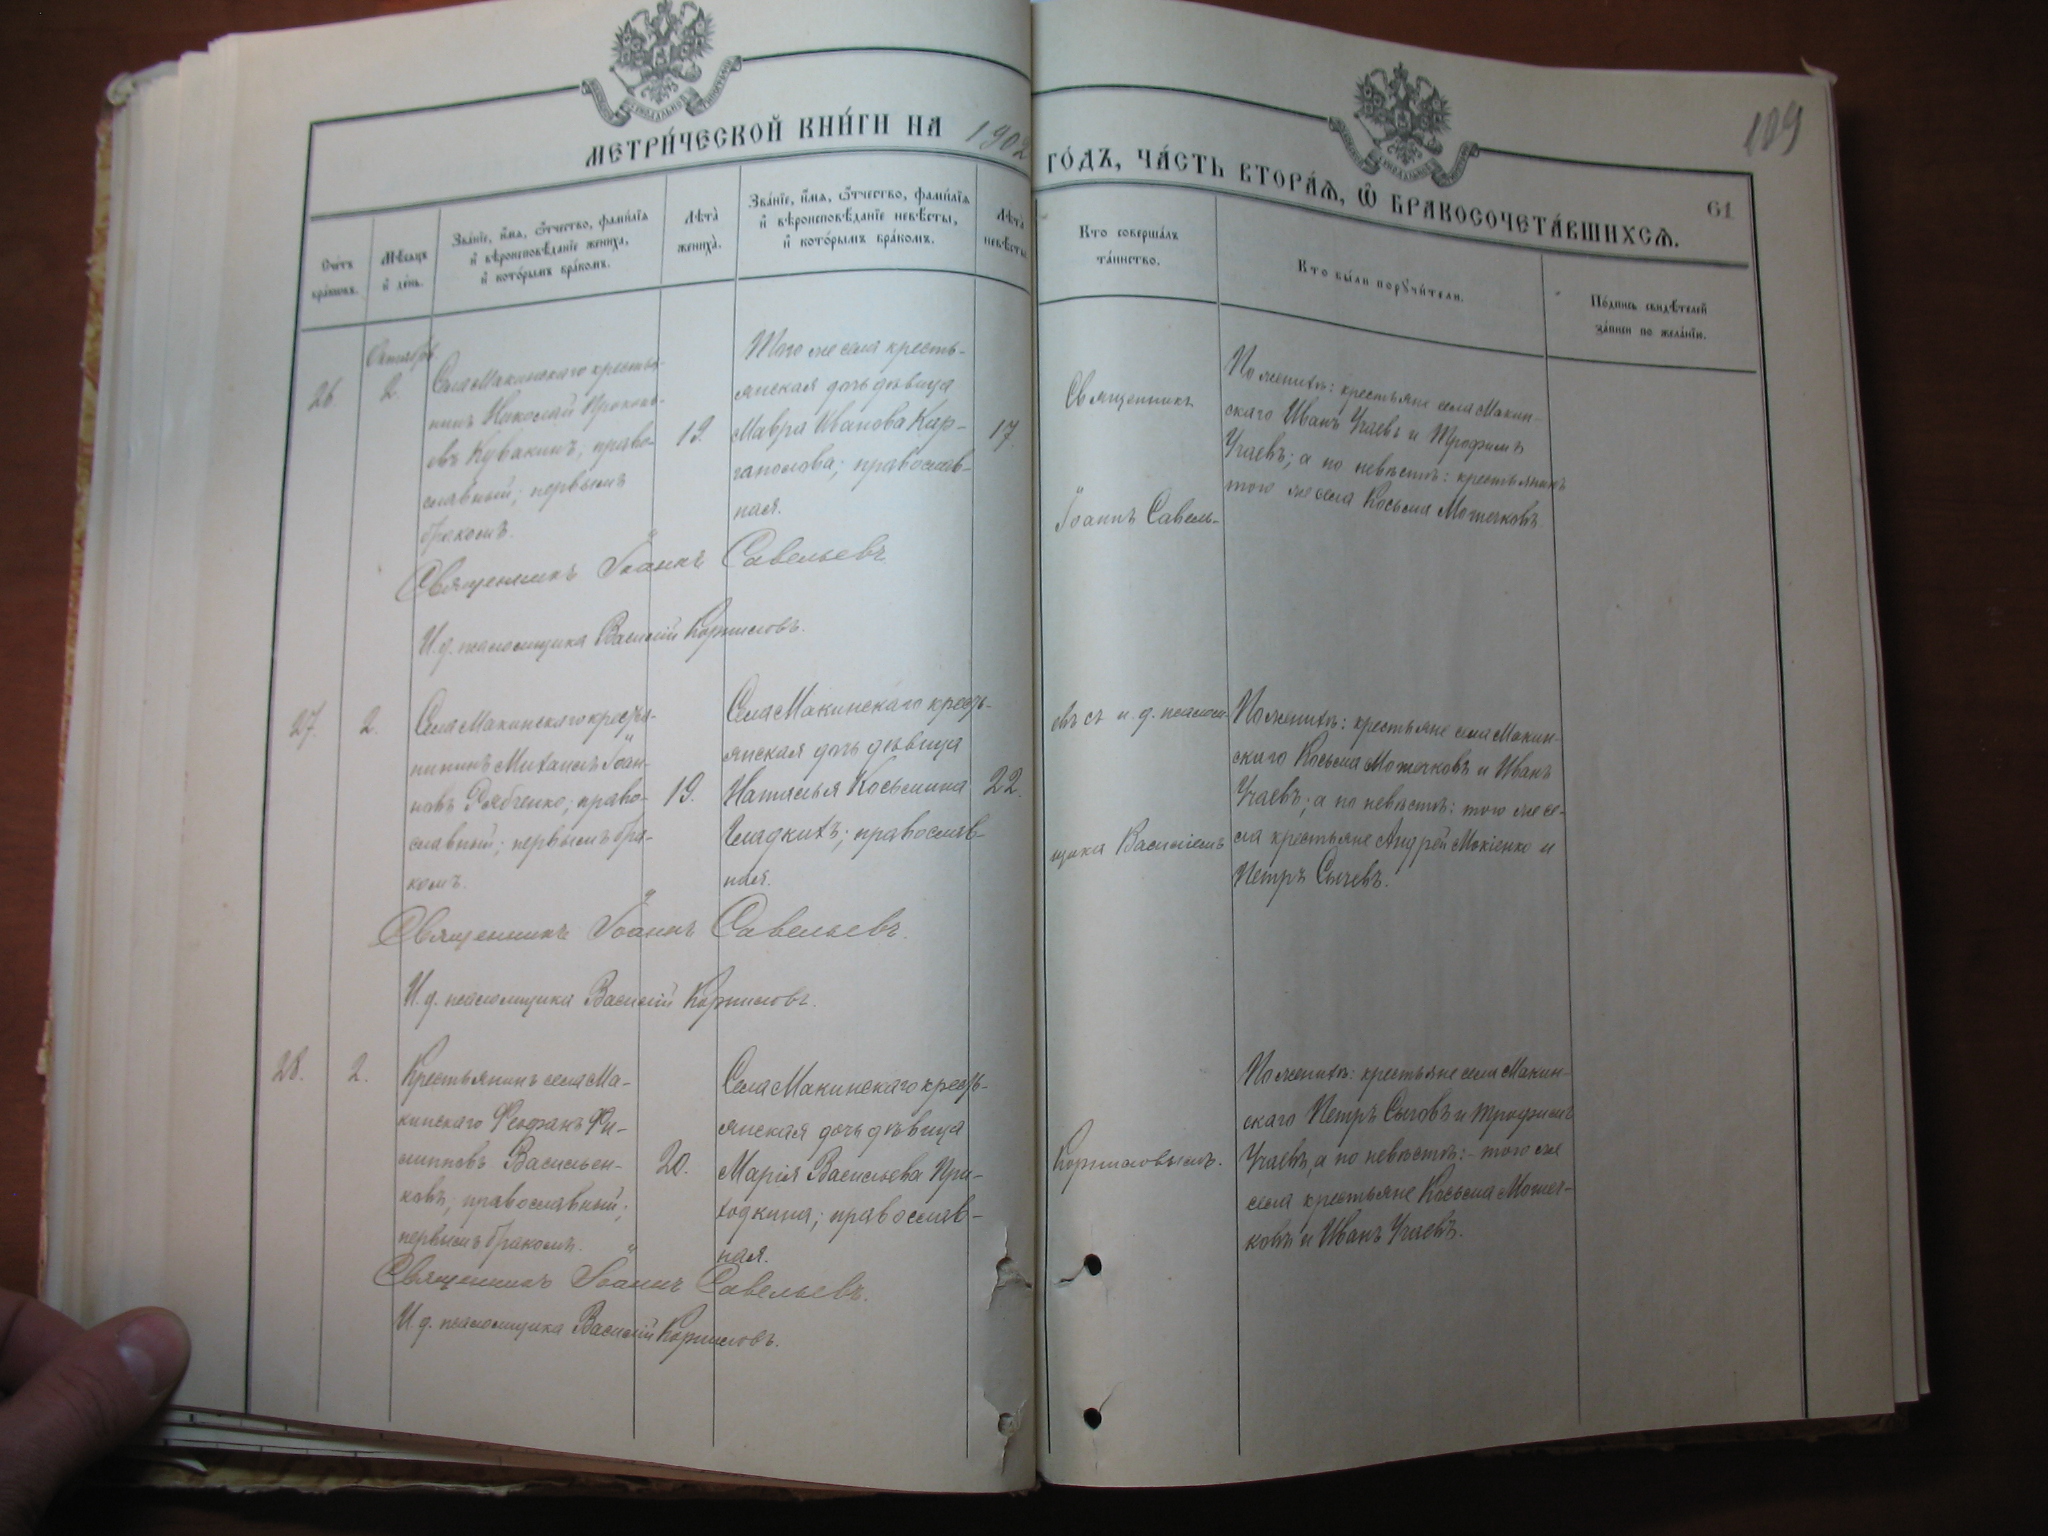 МЕТРИ́ЧЕСКОЙ КНИ́ГИ НА 1902
ГО́ДЪ, ЧА́СТЬ ВТОРА́Ѧ, Ѽ БРАКОСОЧЕТА́ВШИХСѦ.
109
61
Счетъ
браковъ.
Мѣсяцъ
и день.
Званіе, имя, отчество, фамилія
и вѣроисповѣданіе жениха,
и которымъ бракомъ.
Лѣта
жениха.
Званіе, имя, отчество, фамилія
и вѣроисповѣданіе невѣсты,
и которымъ бракомъ.
Лѣта
невѣсты.
Кто совершалъ
таинство.
Кто были поручители.
Подпись свидѣтелей
записи по желанію.
Октябрь
26.
2.
Села Макинскаго крестья-
нинъ Николай Прокопь-
евъ Кувакинъ; право-
славный; первымъ
бракомъ.
19.
Того же села кресть-
янская дочь дѣвица
Мавра Иванова Кар-
гаполова; православ-
ная.
17.
Священникъ
Іоаннъ Савель-
По женихѣ: крестьяне села Макин-
скаго Иванъ Учаевъ и Трофимъ
Учаевъ; а по невѣстѣ: крестьянинъ
того же села Косьма Мотечковъ
Священникъ Іоаннъ Савельевъ.
И. д. псаломщика Василій Кортиловъ.
27.
2.
Села Макинскаго крестья-
нинъ Михаилъ Іоан-
новъ Рябченко; право-
славный; первымъ бра-
комъ.
19.
Села Макинскаго кресть-
янская дочь дѣвица
Наталья Косьмина
Гладкихъ; православ-
ная.
22.
евъ съ и. д. псалом-
щика Василіемъ
По женихѣ: крестьяне села Макин-
скаго Косьма Мотечковъ и Иванъ
Учаевъ; а по невѣстѣ: того же се-
ла крестьяне Андрей Мокіенко и
Петръ Сычевъ.
Священникъ Іоаннъ Савельевъ.
И. д. псаломщика Василій Кортиловъ.
28.
2.
Крестьянинъ села Ма-
кинскаго Феофанъ Фи-
липповъ Васильен-
ковъ; православный;
первымъ бракомъ.
20.
Села Макинскаго кресть-
янская дочь дѣвица
Марія Васильева При-
ходкина; православ-
ная.
Кортиловымъ.
По женихѣ: крестьяне села Макин-
скаго Петръ Сычовъ и Трофимъ
Учаевъ, а по невѣстѣ: того же
села крестьяне Косьма Мотеч-
ковъ и Иванъ Учаевъ.
Священникъ Іоаннъ Савельевъ.
И. д. псаломщика Василій Кортиловъ.